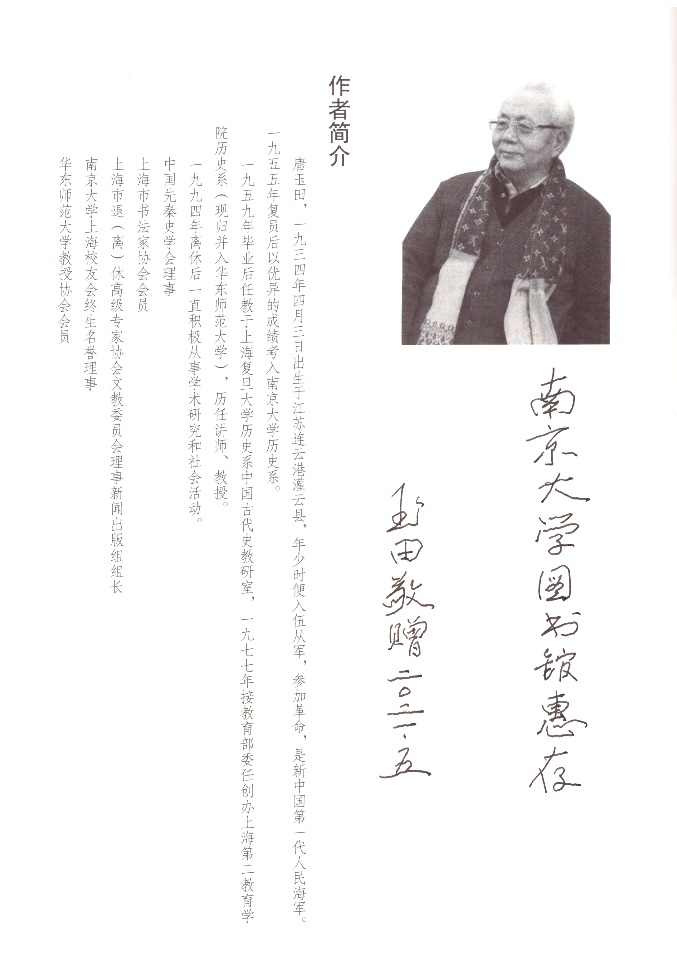 南京大学图书馆惠存
玉田敬赠二〇二一.五
作者简介
唐玉田，一九三四年四月三日出生于江苏连云港灌云县，年少时便入伍从军，参加革命，是新中国第一代人民海军。
一九五五年复员后以优异的成绩考入南京大学历史系。
一九五九年毕业后任教于上海复旦大学历史系中国古代史教研室，一九七七年接教育部委任创办上海第二教育学
院历史系（现归并入华东师范大学），历任讲师、教授。
一九九四年离休后一直积极从事学术研究和社会活动。
中国先秦史学会理事
上海市书法家协会会员
上海市退（离）休高级专家协会文教委员会理事新闻出版组组长
南京大学上海校友会终生名誉理事
华东师范大学教授协会会员